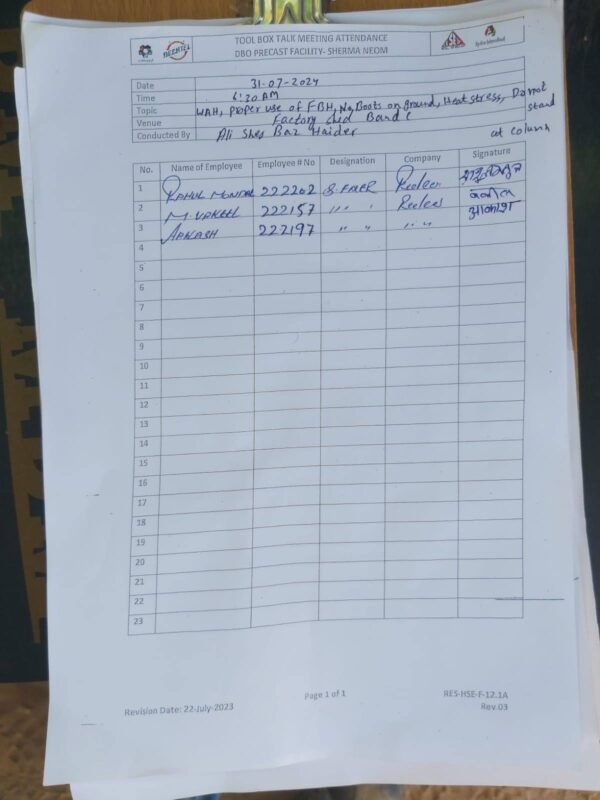 BECHTEL
TOOL BOX TALK MEETING ATTENDANCE
DBO PRECAST FACILITY- SHERMA NEOM
Date 31-07-2024
Time 6:30 AM
Topic WAH, proper use of FBH, No Boots on ground, Heat stress, Do not stand at column
Venue Factory shed Band C
Conducted By Ali Sher Baz Haider
No. Name of Employee Employee # No Designation Company Signature
1 RAHUL MONDAL 222202
2 M. VAKEEL 222157 " "
3 AAKASH 222197 " " " " आकाश
4
5
6
7
8
9
10
11
12
13
14
15
16
17
18
19
20
21
22
23
Page 1 of 1
Revision Date: 22-July-2023
RES-HSE-F-12.1A
Rev.03